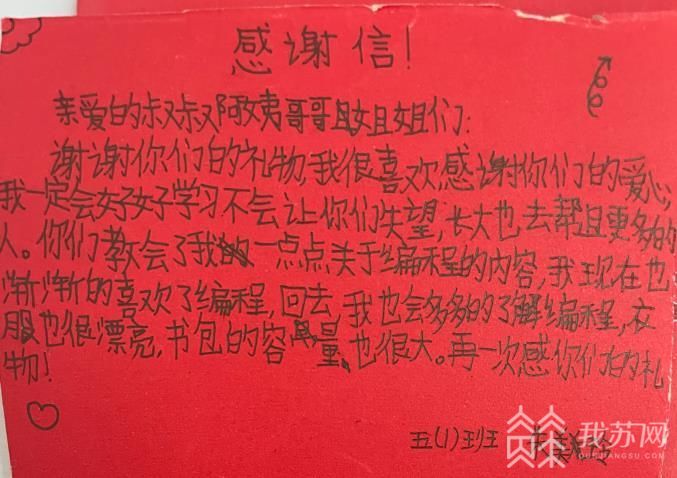 感谢信!
亲爱的叔叔阿姨哥哥姐姐们:
谢谢你们的礼物,我很喜欢感谢你们的爱心,
我一定会好好学习不会让你们失望,长大也去帮且更多的
人。你们教会了我一点点关于编程的内容,我现在也
渐渐的喜欢了编程,回去,我也会多多的了解编程,衣
服也很漂亮,书包的容量也很大。再一次感你们的礼
物!
五(1)班
我苏网
OURJIANGSU.COM